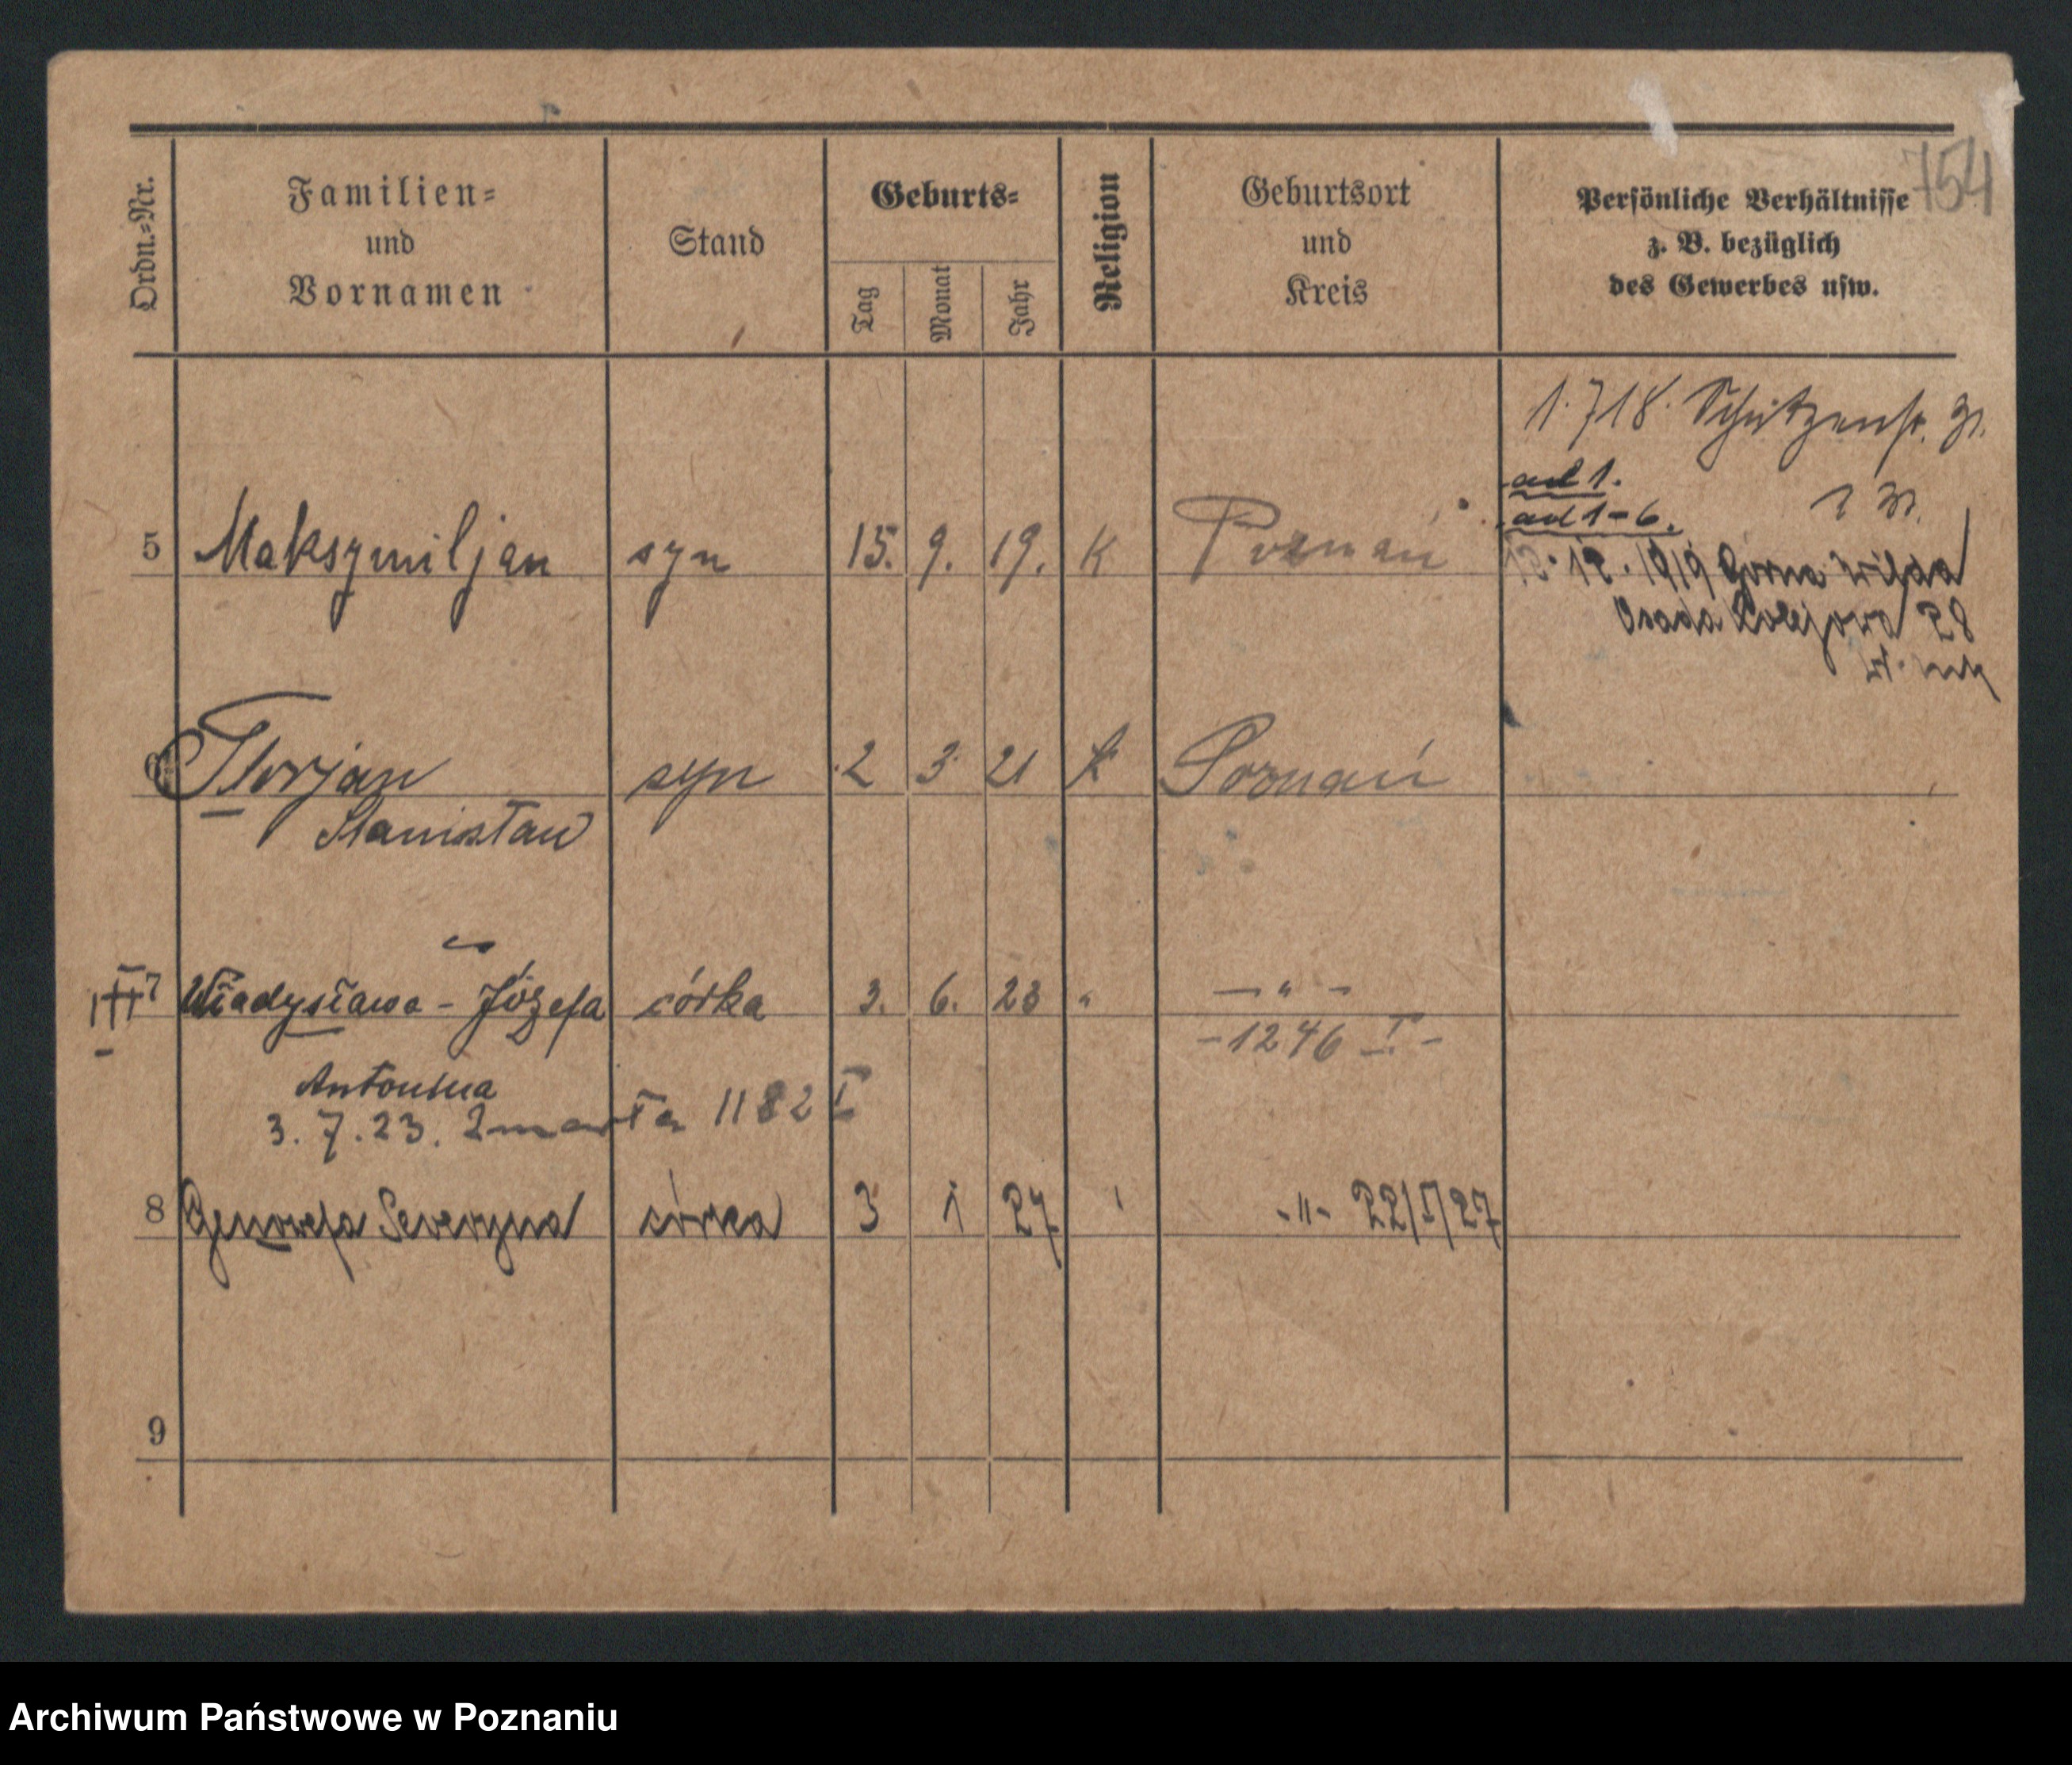 754
Ordn.-Nr.
Familien-
und
Vornamen
Stand
Geburts-
Tag
Monat
Jahr
Religion
Geburtsort
und
Kreis
Persönliche Verhältnisse
z. B. bezüglich
des Gewerbes usw.
1.718. Schützenstr. 31.
ad 1.
ad 1-6.
5 Maksymiljan syn 15. 9. 19. K Poznań
12.12.1919 Gorna Wilda
Osada Kolejowa 28
6 Florjan syn 2 3 21 K Poznań
Stanisław
7 Władysława - Józefa córka 3. 6. 23 " — " —
-1246 I-
Antonina
3. 7. 23. Zmarła 1182 I
8 Genowefa Seweryna córka 3 1 27 ' -"- 22/I/27
9
Archiwum Państwowe w Poznaniu